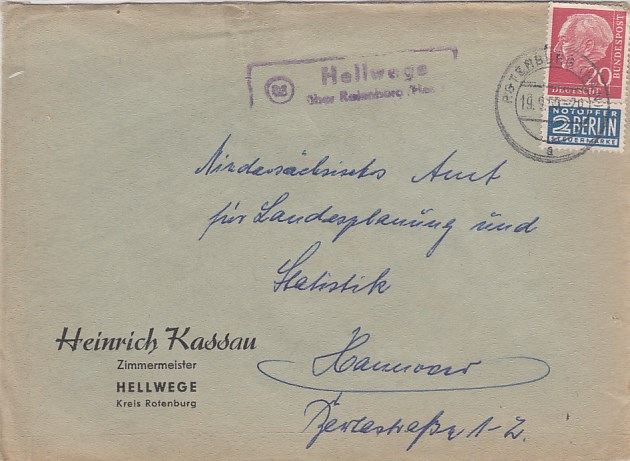 Hellwege
über Rotenburg (Han
ROTENBURG
19.9.
a
20
DEUTSCHE
BUNDESPOST
NOTOPFER
2 BERLIN
STEUERMARKE
Niedersächsisches Amt
für Landesplanung und
Statistik
Hannover
1-2.
Heinrich Kassau
Zimmermeister
HELLWEGE
Kreis Rotenburg